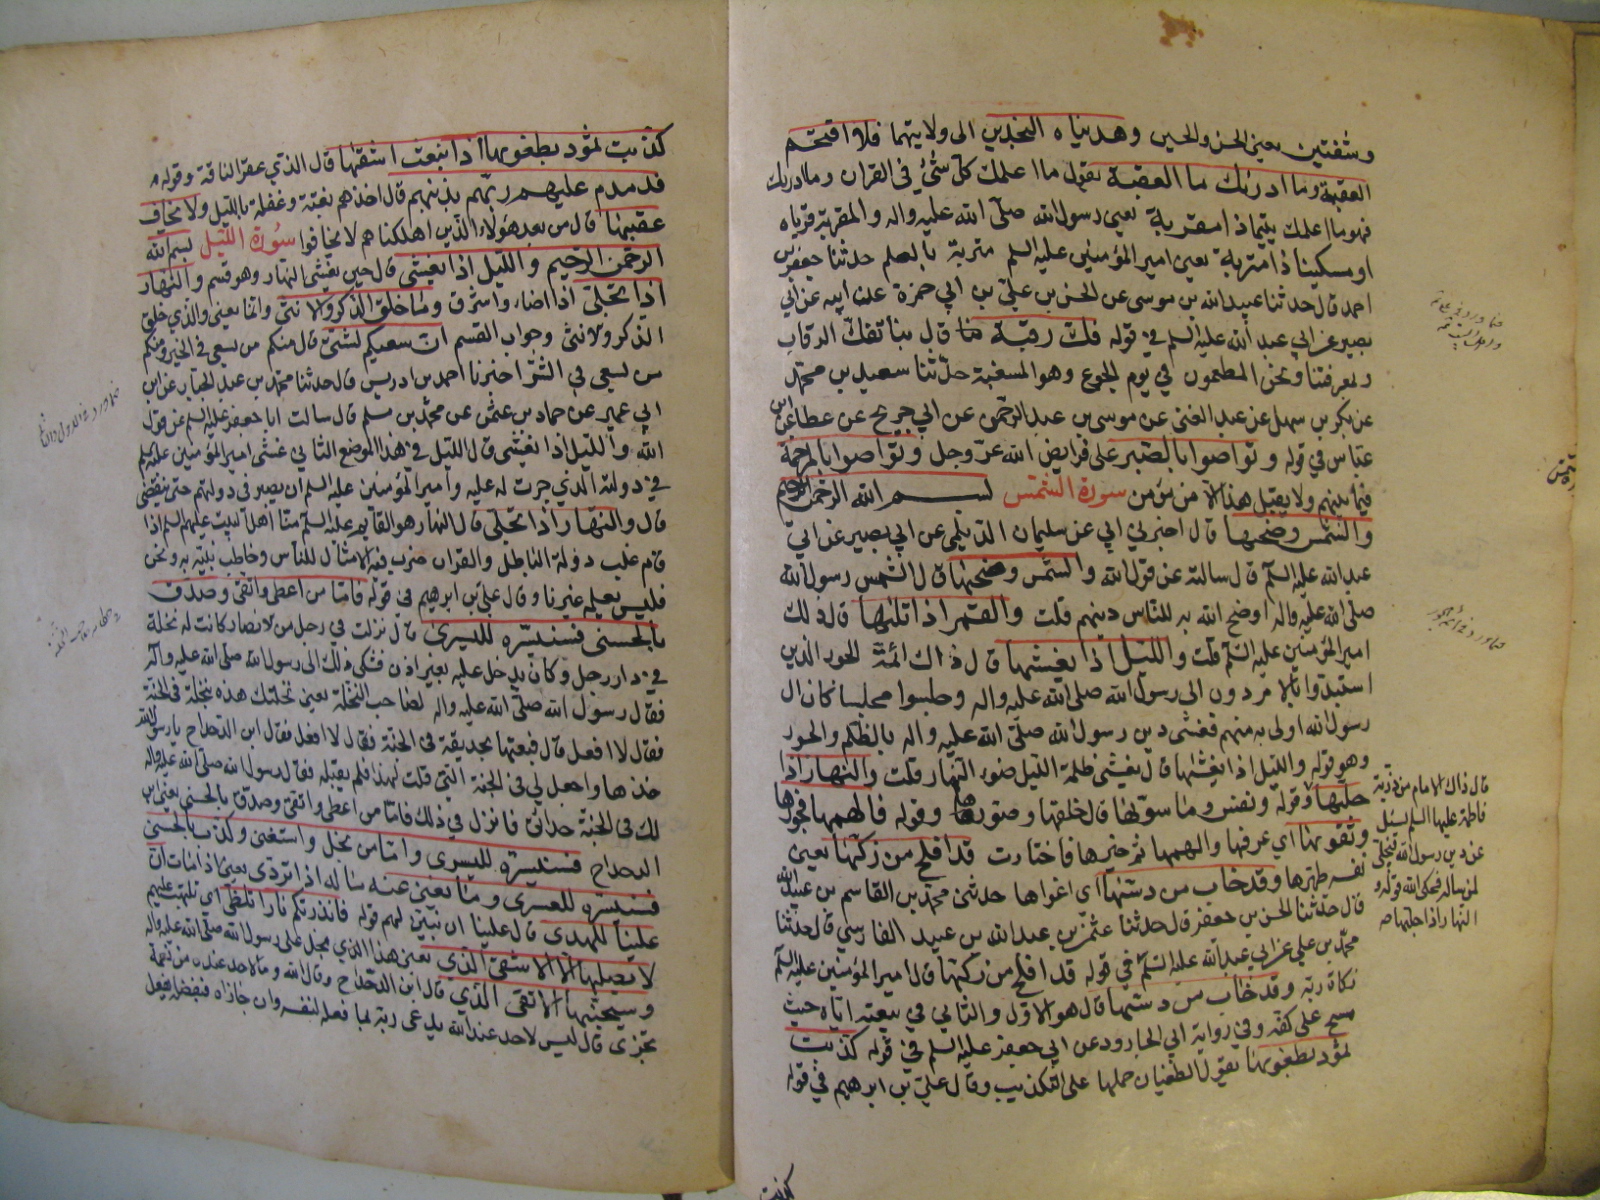 وشفتين يعني الحسن والحسين وهديناه النجدين الى ولايتهما فلا اقتحم
العقبة وما ادريك ما العقبة يقول ما اعلمك كل شيء في القران وما ادريك
فهو ما اعلمك يتيما ذا مقربة يعني رسول الله صلى الله عليه واله والمقربة قرباه
او مسكينا ذا متربة يعني امير المؤمنين عليه السلم متربة بالعلم حدثنا جعفر بن
احمد قال حدثنا عبيد الله بن موسى عن الحسن بن علي بن ابي حمزة عن ابيه عن ابي
بصير عن ابي عبد الله عليه السلم في قوله فك رقبة قال بنا تفك الرقاب
وبمعرفتنا ونحن المطعمون في يوم الجوع وهو المسغبة حدثنا سعيد بن محمد
عن بكر بن سهل عن عبد الغني عن موسى بن عبد الرحمن عن ابي جريح عن عطا عن ابن
عباس في قوله وتواصوا بالصبر على فرايض الله عز وجل وتواصوا بالمرحمة
فيما بينهم ولا يقبل هذا الا من مؤمن سورة الشمس بسم الله الرحمن الرحيم
والشمس وضحيها قال اخبرني ابي عن سليمان الديلمي عن ابي بصير عن ابي
عبد الله عليه السلم قال سالته عن قول الله والشمس وضحيها قال الشمس رسول الله
صلى الله عليه واله اوضح الله به للناس دينهم قلت والقمر اذا تليها قال ذلك
امير المؤمنين عليه السلم قلت والليل اذا يغشيها قال ذاك ائمة الجور الذين
استبدوا بالامر دون ال رسول الله صلى الله عليه واله وجلسوا مجلسا كان ال
رسول الله اولى به منهم فغشى دين رسول الله صلى الله عليه واله بالظلم والجور
وهو قوله والليل اذا يغشيها قال يغشى ظلمة الليل ضوء النهار قلت والنهار اذا
جليها وقوله ونفس وما سويها قال خلقها وصورها وقوله فالهمها فجورها
وتقويها اي عرفها والهمها ثم خيرها فاختارت قد افلح من زكيها يعني
نفسه طهرها وقد خاب من دسيها اي اغواها حدثني محمد بن القاسم بن عبيد الله
قال حدثنا الحسن بن جعفر قال حدثنا عثمن بن عبد الله بن عبيد الفارسي قال حدثنا
محمد بن علي عن ابي عبد الله عليه السلم في قوله قد افلح من زكيها قال امير المؤمنين عليه السلم
زكاة ربه وقد خاب من دسيها قال هو الاول والثاني في بيعته اياه حيث
مسح على كفه وفي رواية ابي الجارود عن ابي جعفر عليه السلم في قوله كذبت
ثمود بطغويها يقول الطغيان حملها على التكذيب وقال علي بن ابرهيم في قوله
قال ذاك الامام من ذرية
فاطمة عليها السلم يسئل
عن دين رسول الله فيجلى
لمن ساله فحكى الله قوله و
النهار اذا جليها
كذبت
كذبت ثمود بطغويها اذ انبعث اشقيها قال الذي عقر الناقة وقوله
فدمدم عليهم ربهم بذنبهم قال اخذهم بغتة وغفلة بالليل ولا يخاف
عقبيها قال من بعد هؤلاء الذين اهلكناهم لا يخافوا سورة الليل بسم الله
الرحمن الرحيم والليل اذا يغشى قال حين يغشى النهار وهو قسم والنهار
اذا تجلى اذا اضاء واشرق وما خلق الذكر والانثى وانما يعني والذي خلق
الذكر والانثى وجواب القسم ان سعيكم لشتى قال منكم من يسعى في الخير ومنكم
من يسعى في الشر اخبرنا احمد بن ادريس قال حدثنا محمد بن عبد الجبار عن ابن
ابي عمير عن حماد بن عثمن عن محمد بن مسلم قال سالت ابا جعفر عليه السلم عن قول
الله والليل اذا يغشى قال الليل في هذا الموضع الثاني غشى امير المؤمنين عليه السلم
في دولته الذي جرت له عليه وامير المؤمنين عليه السلم ان يصبر في دولتهم حتى ينقضي
قال والنهار اذا تجلى قال النهار هو القايم عليه السلم منا اهل البيت عليهم السلم اذا
قام غلب دولة الباطل والقران ضرب فيه الامثال للناس وخاطب نبيه به ونحن
فليس يعلمه غيرنا وقال علي بن ابرهيم في قوله فاما من اعطى واتقى وصدق
بالحسنى فسنيسره لليسرى قال نزلت في رجل من الانصار كانت له نخلة
في دار رجل وكان يدخل عليه بغير اذن فشكى ذلك الى رسول الله صلى الله عليه واله
فقال رسول الله صلى الله عليه واله لصاحب النخلة بعني نخلتك هذه بنخلة في الجنة
فقال لا افعل قال فبعنيها بحديقة في الجنة فقال لا افعل فقال ابن الدحداح يا رسول الله
خذها واجعل لي في الجنة التي قلت لهذا فلم يقبله فقال رسول الله صلى الله عليه واله
لك في الجنة حدائق فانزل في ذلك فاما من اعطى واتقى وصدق بالحسنى يعني ابن
الدحداح فسنيسره لليسرى واما من بخل واستغنى وكذب بالحسنى
فسنيسره للعسرى وما يغني عنه ماله اذا تردى يعني اذا مات ان
علينا للهدى قال علينا ان نبين لهم قوله فانذرتكم نارا تلظى اي تلتهب عليهم
لا يصليها الا الاشقى الذي يعني هذا الذي بخل على رسول الله صلى الله عليه واله
وسيجنبها الاتقى الذي قال ابن الدحداح وقال الله وما لاحد عنده من نعمة
تجزى قال ليس لاحد عند الله يدعى ربه بما فعله لنفسه وان جازاه فبفضله يفعل